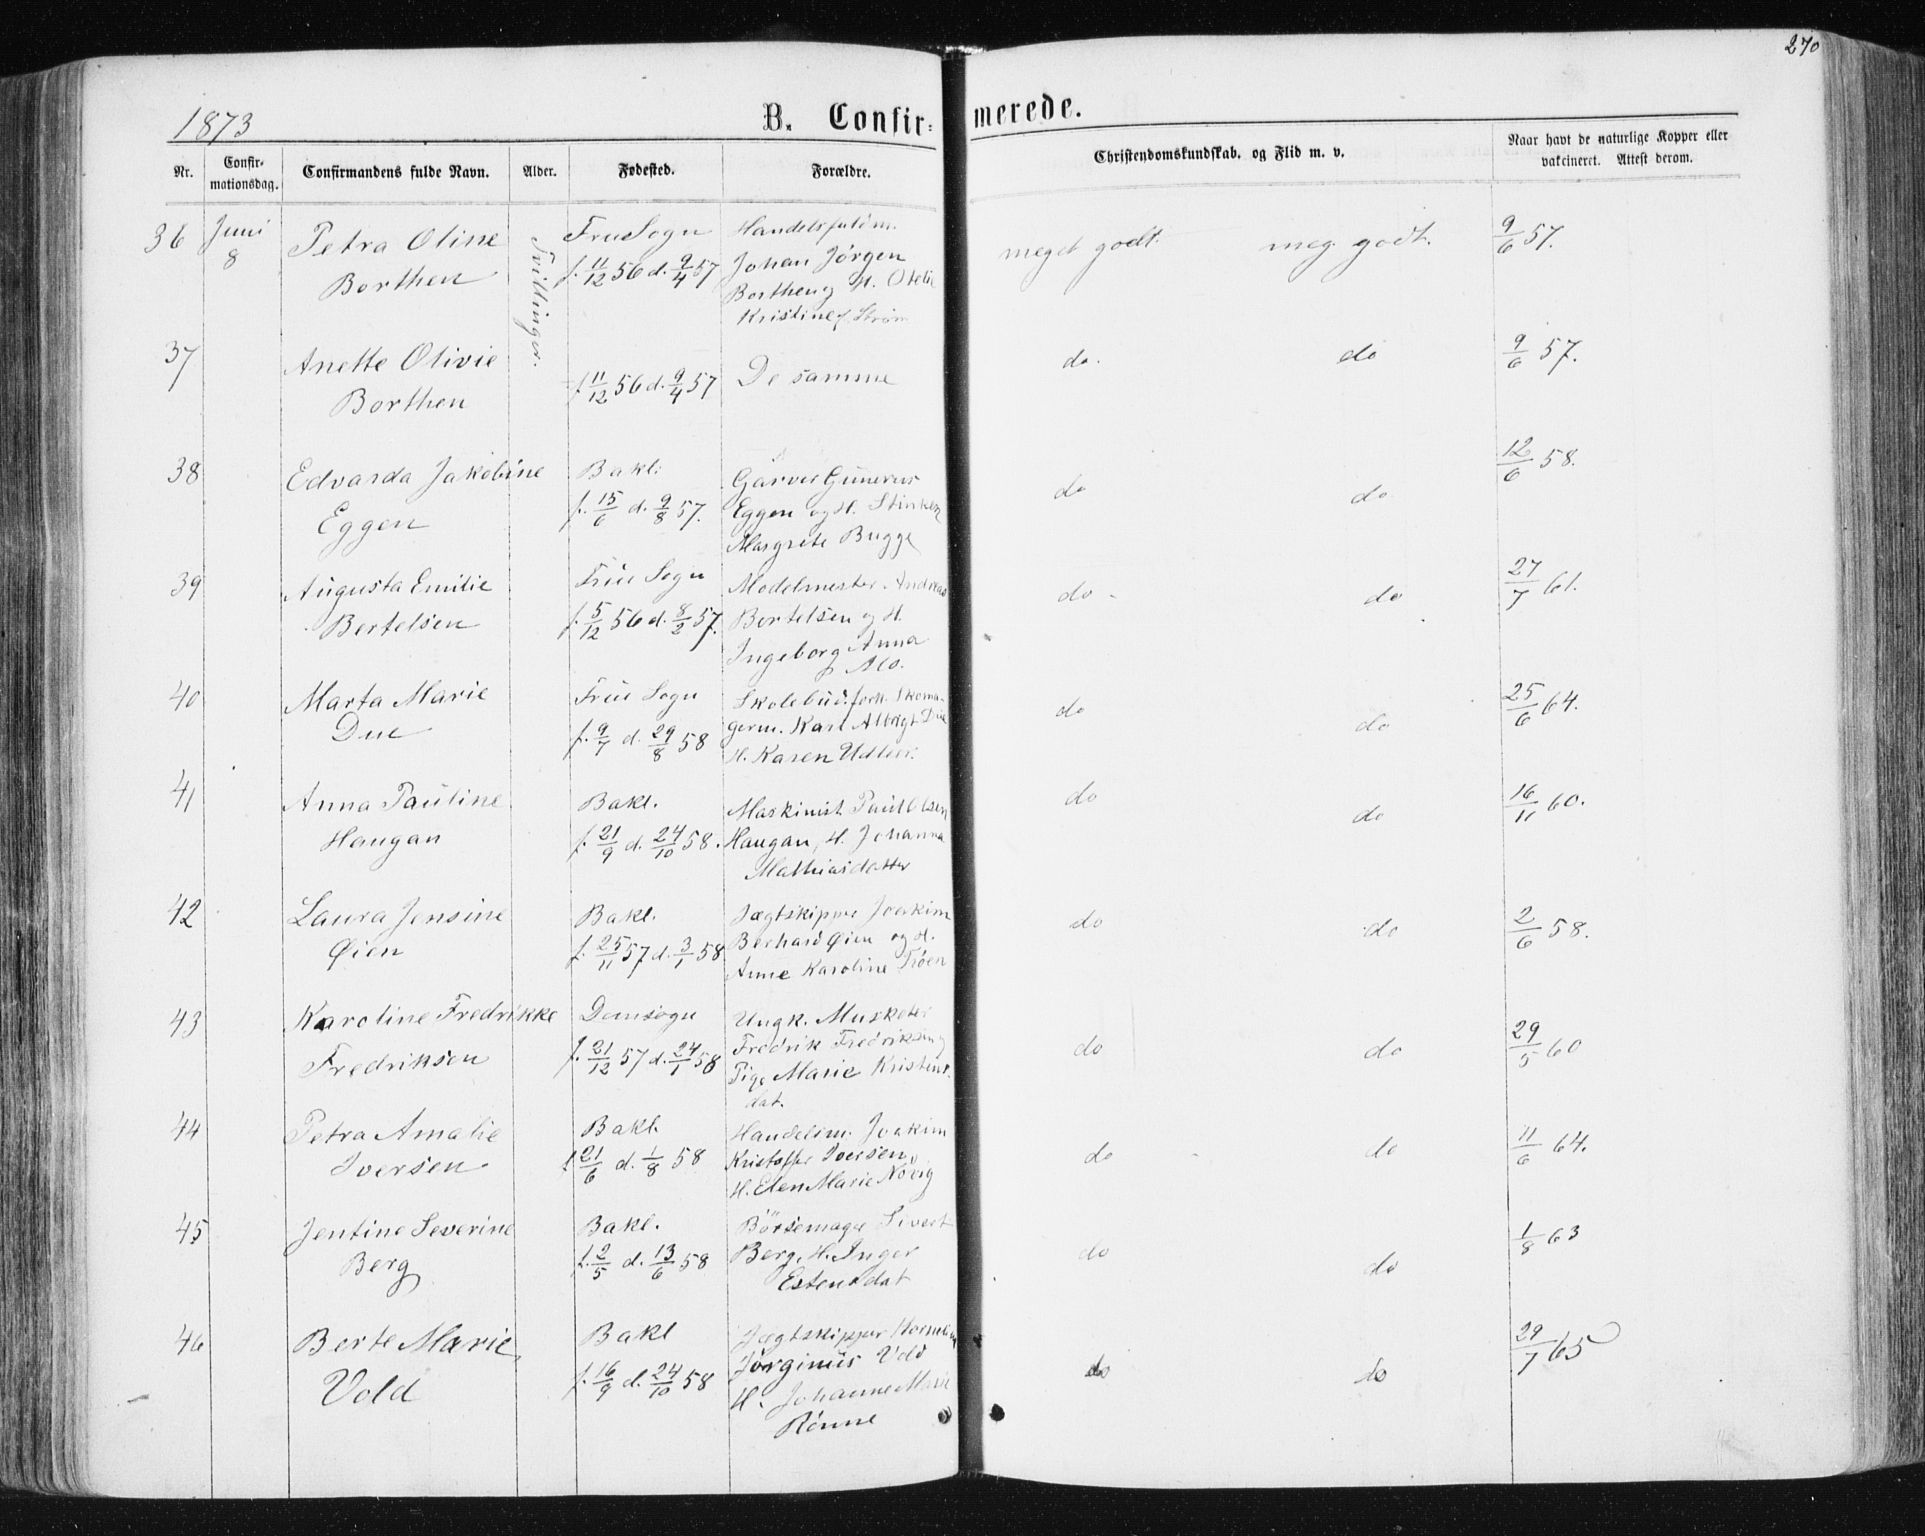 270
1873
B. Confir-
merede.
Nr.
Confir-
mationsdag.
Confirmandens fulde Navn.
Alder.
Fødested.
Forældre.
Christendomskundskab, og Flid m. v.
Naar havt de naturlige Kopper eller
vakcineret. Attest derom.
36
Juni
8
Petra Oline
Borthen
Tvillinger.
Frue Sogn
f. 11/12 56 d. 9/4 57
Johan Jørgen
Borthen og H.
Kristine f. Strøm
meget godt.
meg. godt.
9/6 57.
37
Anette Olivie
Borthen
f. 11/12 56 d. 9/4 57
De samme
do.
do
9/6 57.
38
Edvarda Jakobine
Eggen
Bakl:
f. 15/6 d. 9/8 57.
Garver Gunerus
Eggen og H.
Margrete Bugge
do
do
12/6 58.
39
Augusta Emilie
Bertelsen
Frue Sogn
f. 5/12 56 d. 8/2 57.
Modelmester Andreas
Bertelsen og H.
Ingeborg Anna
Alo.
do -
do
27/7 61.
40
Marta Marie
Due
Frue Sogn
f. 9/7 d. 29/8 58
Skolebud, forh. Skoma-
germ. Karl Albrigt Due
H. Karen
do
do
25/6 64.
41
Anna Pauline
Haugan
Bakl.
f. 21/9 d. 24/10 58.
Maskinist Paul Olsen
Haugan, H. Johanna
Mathiasdatter
do
do
16/11 60.
42
Laura Jensine
Øien
Bakl.
f. 25/11 57 d. 3/1 58
Jægtskipper Joakim
Berhard Øien og H.
Anne Karoline Trøen
do
do
2/6 58.
43
Karoline Fredrikke
Fredriksen
Domsogn
f. 21/12 57 d. 24/1 58
Ungk. Musketer
Fredrik Fredriksen og
Pige Marie Kristens.
dat.
do
do
29/5 60
44
Petra Amalie
Iversen
Bakl.
f. 21/6 d. 1/8 58
Handelsm. Joakim
Kristoffer Iversen,
H. Elen Marie Novig
do
do
11/6 64.
45
Jentine Severine
Berg
Bakl.
f. 2/5 d. 13/6 58
Børsemager Sivert
Berg, H. Inger
Estensdat
do
do
1/8 63
46
Berte Marie
Vold
Bakl
f. 16/9 d. 24/10 58
Jægtskipper Kornelius
Jørginus Vold
H. Johanne Marie
Rønne
do
do
29/7 65